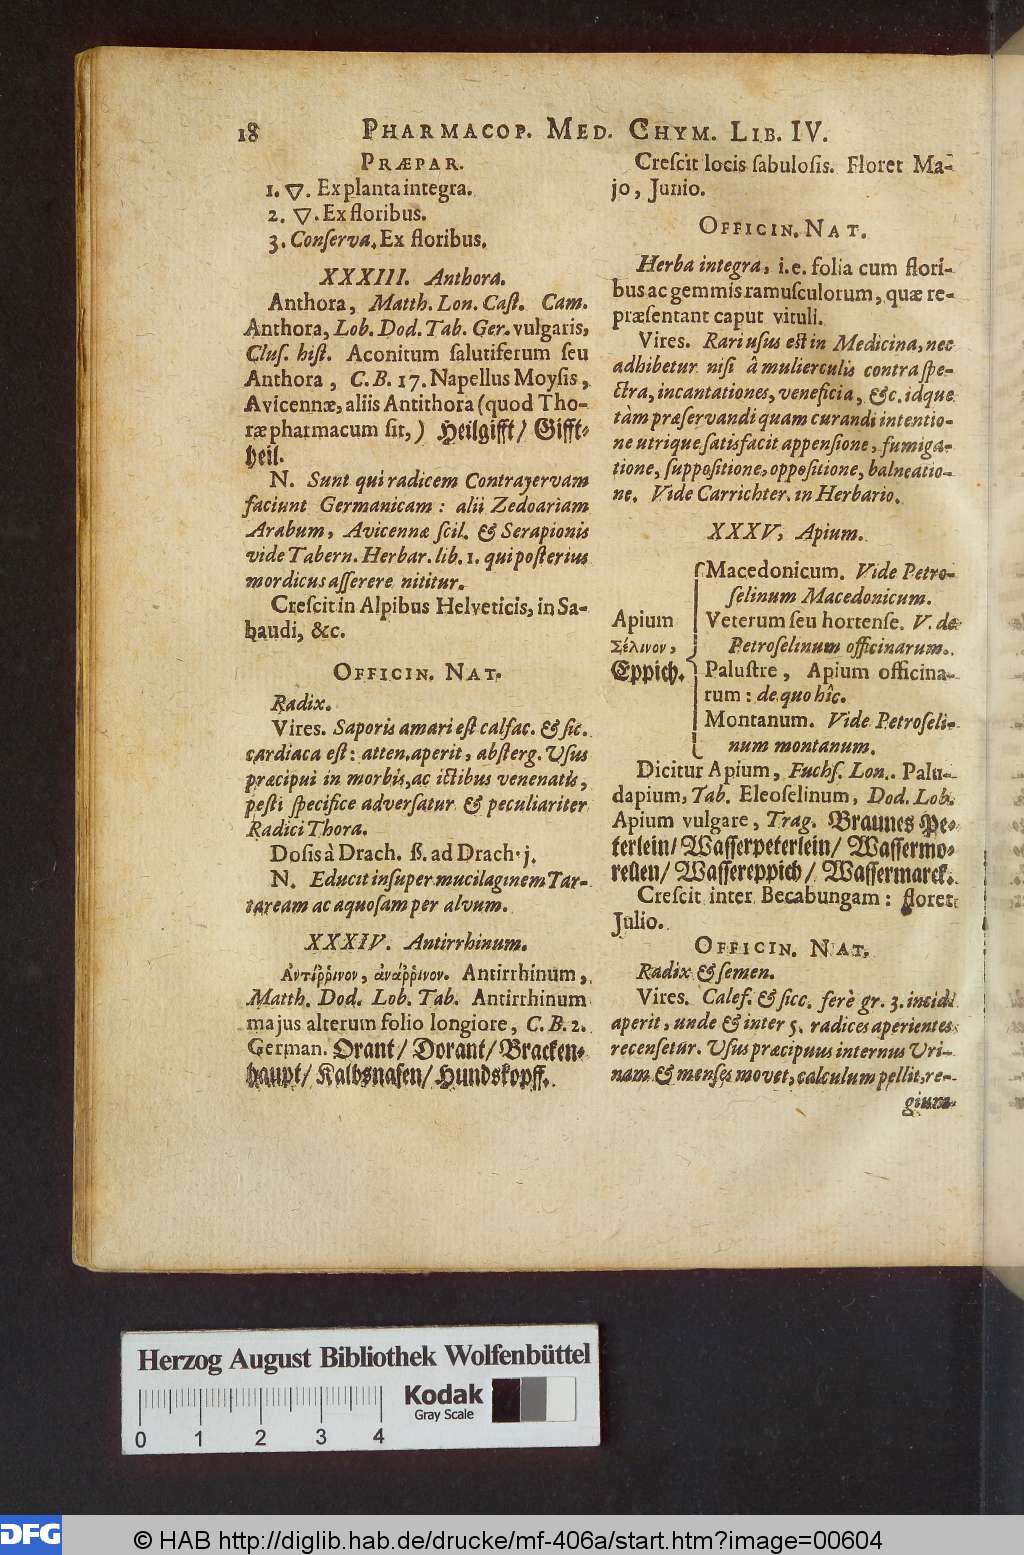 18 PHARMACOP. MED. CHYM. LIB. IV.
PRÆPAR.
1. 🜄. Ex planta integra.
2. 🜄. Ex floribus.
3. Conſerva. Ex floribus.
XXXIII. Anthora.
Anthora, Matth. Lon. Caſt. Cam.
Anthora, Lob. Dod. Tab. Ger. vulgaris,
Cluſ. hiſt. Aconitum ſalutiferum ſeu
Anthora, C. B. 17. Napellus Moyſis,
Avicennæ, aliis Antithora (quod Tho-
ræ pharmacum ſit,) Heilgifft/ Gifft-
heil.
N. Sunt qui radicem Contrayervam
faciunt Germanicam: alii Zedoariam
Arabum, Avicennæ ſcil. & Serapionis
vide Tabern. Herbar. lib. 1. qui poſterius
mordicus aſſerere nititur.
Creſcit in Alpibus Helveticis, in Sa-
baudi, &c.
OFFICIN. NAT.
Radix.
Vires. Saporis amari eſt calfac. & ſic.
cardiaca eſt: atten. aperit, abſterg. Uſus
præcipui in morbis, ac ictibus venenatis,
peſti ſpecifice adverſatur & peculiariter
Radici Thora.
Doſis à Drach. ß. ad Drach. j.
N. Educit inſuper mucilaginem Tar-
taream ac aquoſam per alvum.
XXXIV. Antirrhinum.
Ἀντίῤῥινον, ἀνάῤῥινον. Antirrhinum,
Matth. Dod. Lob. Tab. Antirrhinum
majus alterum folio longiore, C. B. 2.
German. Orant/ Dorant/ Bracken-
haupt/ Kalbsnaſen/ Hundskopff.
Creſcit locis ſabuloſis. Floret Ma-
jo, Junio.
OFFICIN. NAT.
Herba integra, i.e. folia cum flori-
bus ac gemmis ramuſculorum, quæ re-
præſentant caput vituli.
Vires. Rari uſus eſt in Medicina, nec
adhibetur niſi â mulierculis contra ſpe-
ctra, incantationes, veneficia, &c. idque
tàm præſervandi quam curandi intentio-
ne utrique ſatisfacit appenſione, fumiga-
tione, ſuppoſitione, oppoſitione, balneatio-
ne. Vide Carrichter. in Herbario.
XXXV. Apium.
Macedonicum. Vide Petro-
ſelinum Macedonicum.
Apium Veterum ſeu hortenſe. V. de
Σέλινον, Petroſelinum officinarum.
Eppich. Paluſtre, Apium officina-
rum: de quo hîc.
Montanum. Vide Petroſeli-
num montanum.
Dicitur Apium, Fuchſ. Lon. Palu-
dapium, Tab. Eleoſelinum, Dod. Lob.
Apium vulgare, Trag. Braunes Pe-
terlein/ Waſſerpeterlein/ Waſſermo-
rellen/ Waſſereppich/ Waſſermarck.
Creſcit inter Becabungam: floret
Julio.
OFFICIN. NAT.
Radix & ſemen.
Vires. Calef. & ſicc. ferè gr. 3. incidi
aperit, unde & inter 5. radices aperientes
recenſetur. Uſus præcipuus internus Uri-
nam & menſes movet, calculum pellit, re-
gium-
Herzog August Bibliothek Wolfenbüttel
Kodak
Gray Scale
0 1 2 3 4
DFG © HAB http://diglib.hab.de/drucke/mf-406a/start.htm?image=00604